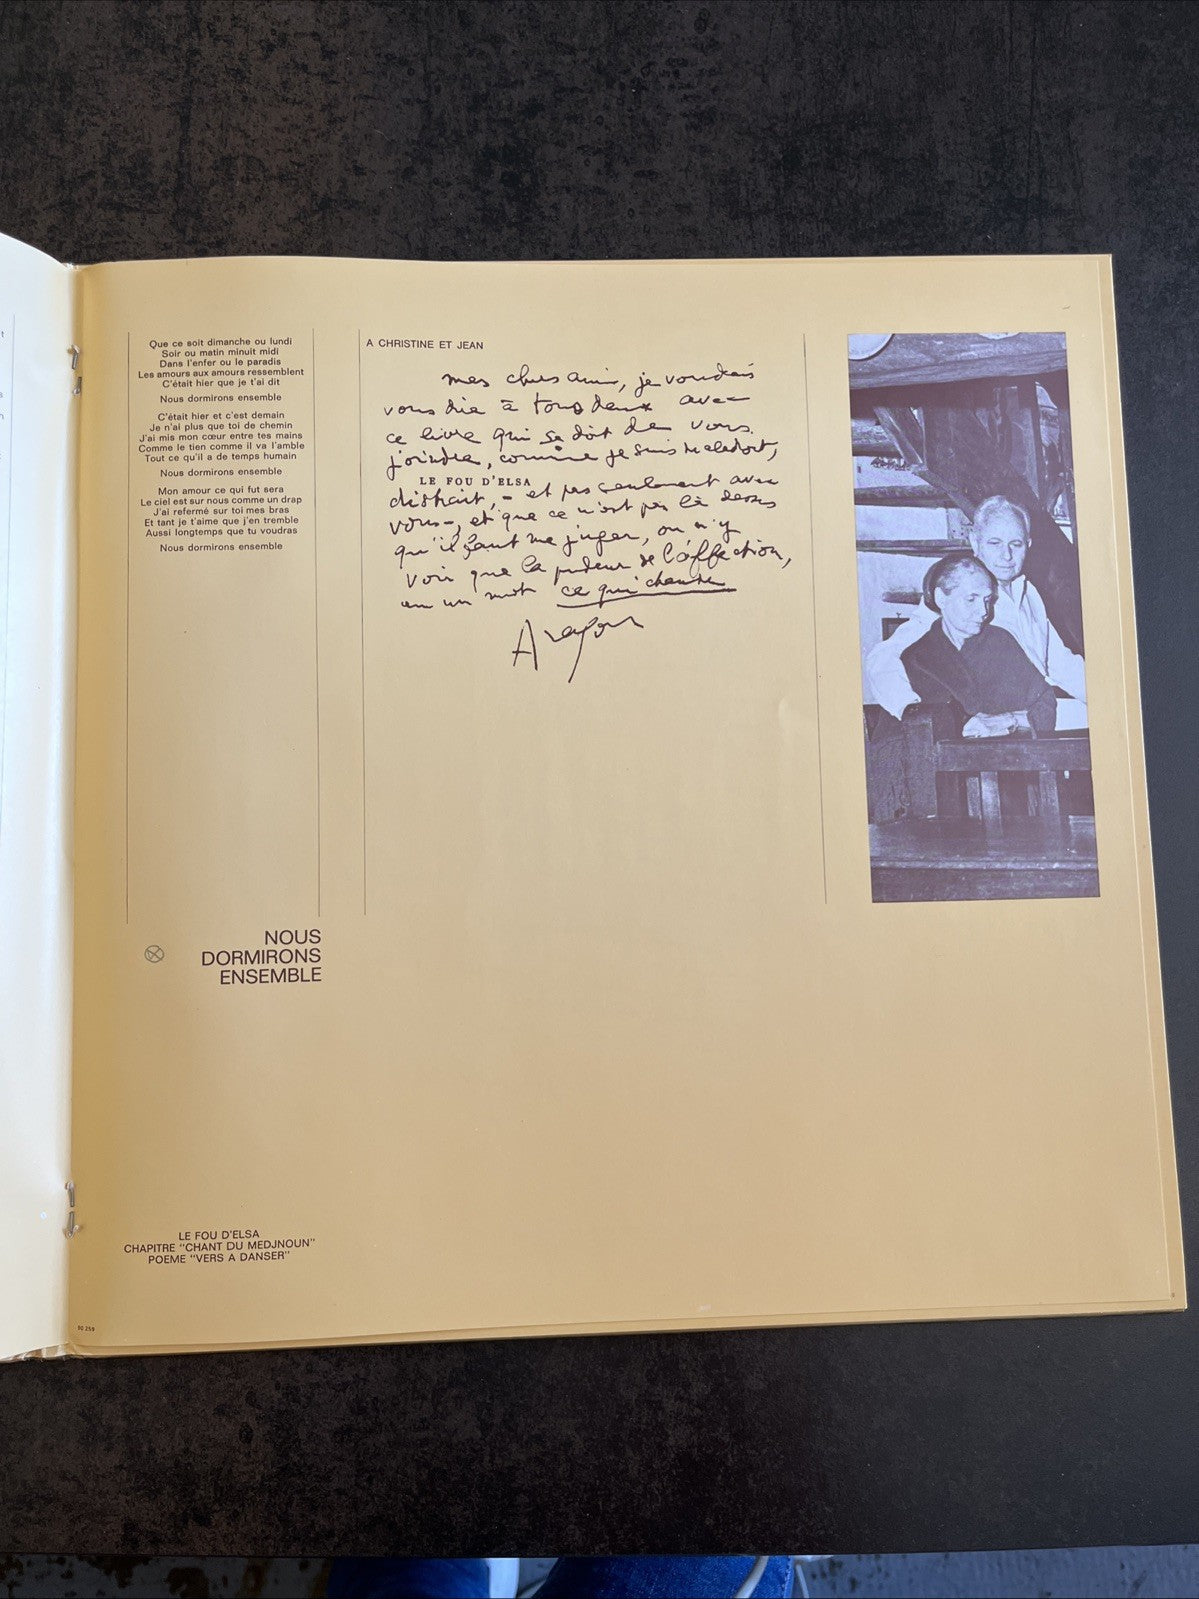 Que ce soit dimanche ou lundi
Soir ou matin minuit midi
Dans l'enfer ou le paradis
Les amours aux amours ressemblent
C'était hier que je t'ai dit
Nous dormirons ensemble
C'était hier et c'est demain
Je n'ai plus que toi de chemin
J'ai mis mon cœur entre tes mains
Comme le tien comme il va l'amble
Tout ce qu'il a de temps humain
Nous dormirons ensemble
Mon amour ce qui fut sera
Le ciel est sur nous comme un drap
J'ai refermé sur toi mes bras
Et tant je t'aime que j'en tremble
Aussi longtemps que tu voudras
Nous dormirons ensemble
NOUS
DORMIRONS
ENSEMBLE
LE FOU D'ELSA
CHAPITRE "CHANT DU MEDJNOUN"
POEME "VERS A DANSER"
90 259
A CHRISTINE ET JEAN
mes chers amis, je voudrais
vous dire à tous deux avec
ce livre qui se doit de vous
joindre, comme je suis maladroit,
LE FOU D'ELSA
distrait, - et pas seulement avec
vous -, et que ce n'est pas là dessus
qu'il faut me juger, ou n'y
voir que la pudeur de l'affection,
en un mot ce qui chante
Aragon